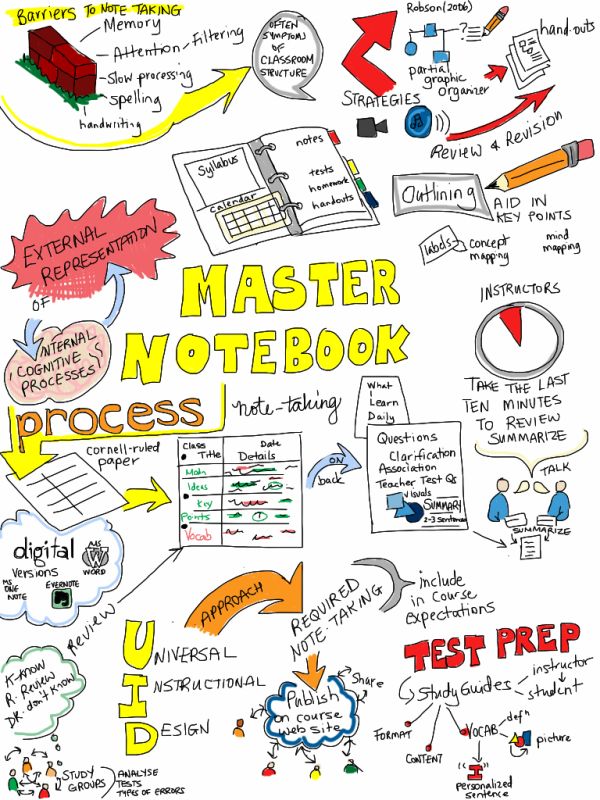 Barriers TO NOTE TAKING
Memory
Attention
Filtering
Slow processing
Spelling
handwriting
OFTEN
SYMPTOMS
OF
CLASSROOM
STRUCTURE
Robson (2006)
?
partial
graphic
organizer
hand-outs
STRATEGIES
Review & Revision
Syllabus
Calendar
notes
tests
homework
handouts
Outlining
AID IN
KEY POINTS
labels
concept
mapping
mind
mapping
EXTERNAL
REPRESENTATION
OF
INTERNAL
COGNITIVE
PROCESSES
MASTER
NOTEBOOK
INSTRUCTORS
TAKE THE LAST
TEN MINUTES
TO REVIEW
SUMMARIZE
TALK
SUMMARIZE
process
note-taking
cornell-ruled
paper
Class
Title
Date
Details
Main
Ideas
Key
Points
Vocab
ON
back
What
I
Learn
Daily
Questions
Clarification
Association
Teacher Test Qs
Visuals
SUMMARY
2-3 Sentences
digital
versions
MS
ONE
NOTE
EVERNOTE
MS
W
WORD
Review
K-Know
R: Review
DK: don't Know
STUDY
GROUPS
ANALYSE
TESTS
TYPES OF ERRORS
UNIVERSAL
INSTRUCTIONAL
DESIGN
APPROACH
REQUIRED
NOTE-TAKING
include
in Course
Expectations
Publish
on course
web site
Share
TEST PREP
Study Guides
instructor
student
FORMAT
CONTENT
VOCAB
defn
picture
"I"
personalized
sentence